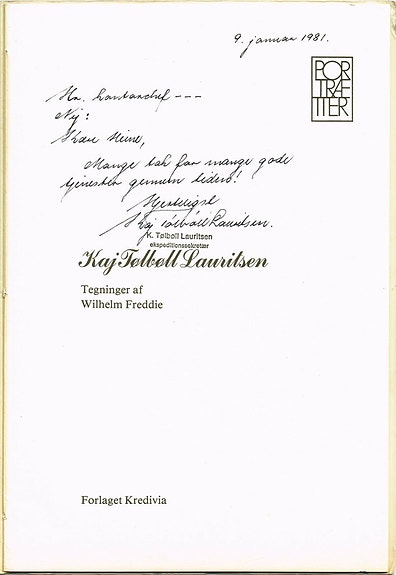 9. januar 1981.
POR
TRÆT
TER
Hr. kontorchef ---
Nej:
Kære Heine,
Mange tak for mange gode
tjenester gennem tiden!
Hjerteligst
Kaj Tølbøll Lauritsen.
K. Tølbøll Lauritsen
ekspeditionssekretær
Kaj Tølbøll Lauritsen
Tegninger af
Wilhelm Freddie
Forlaget Kredivia